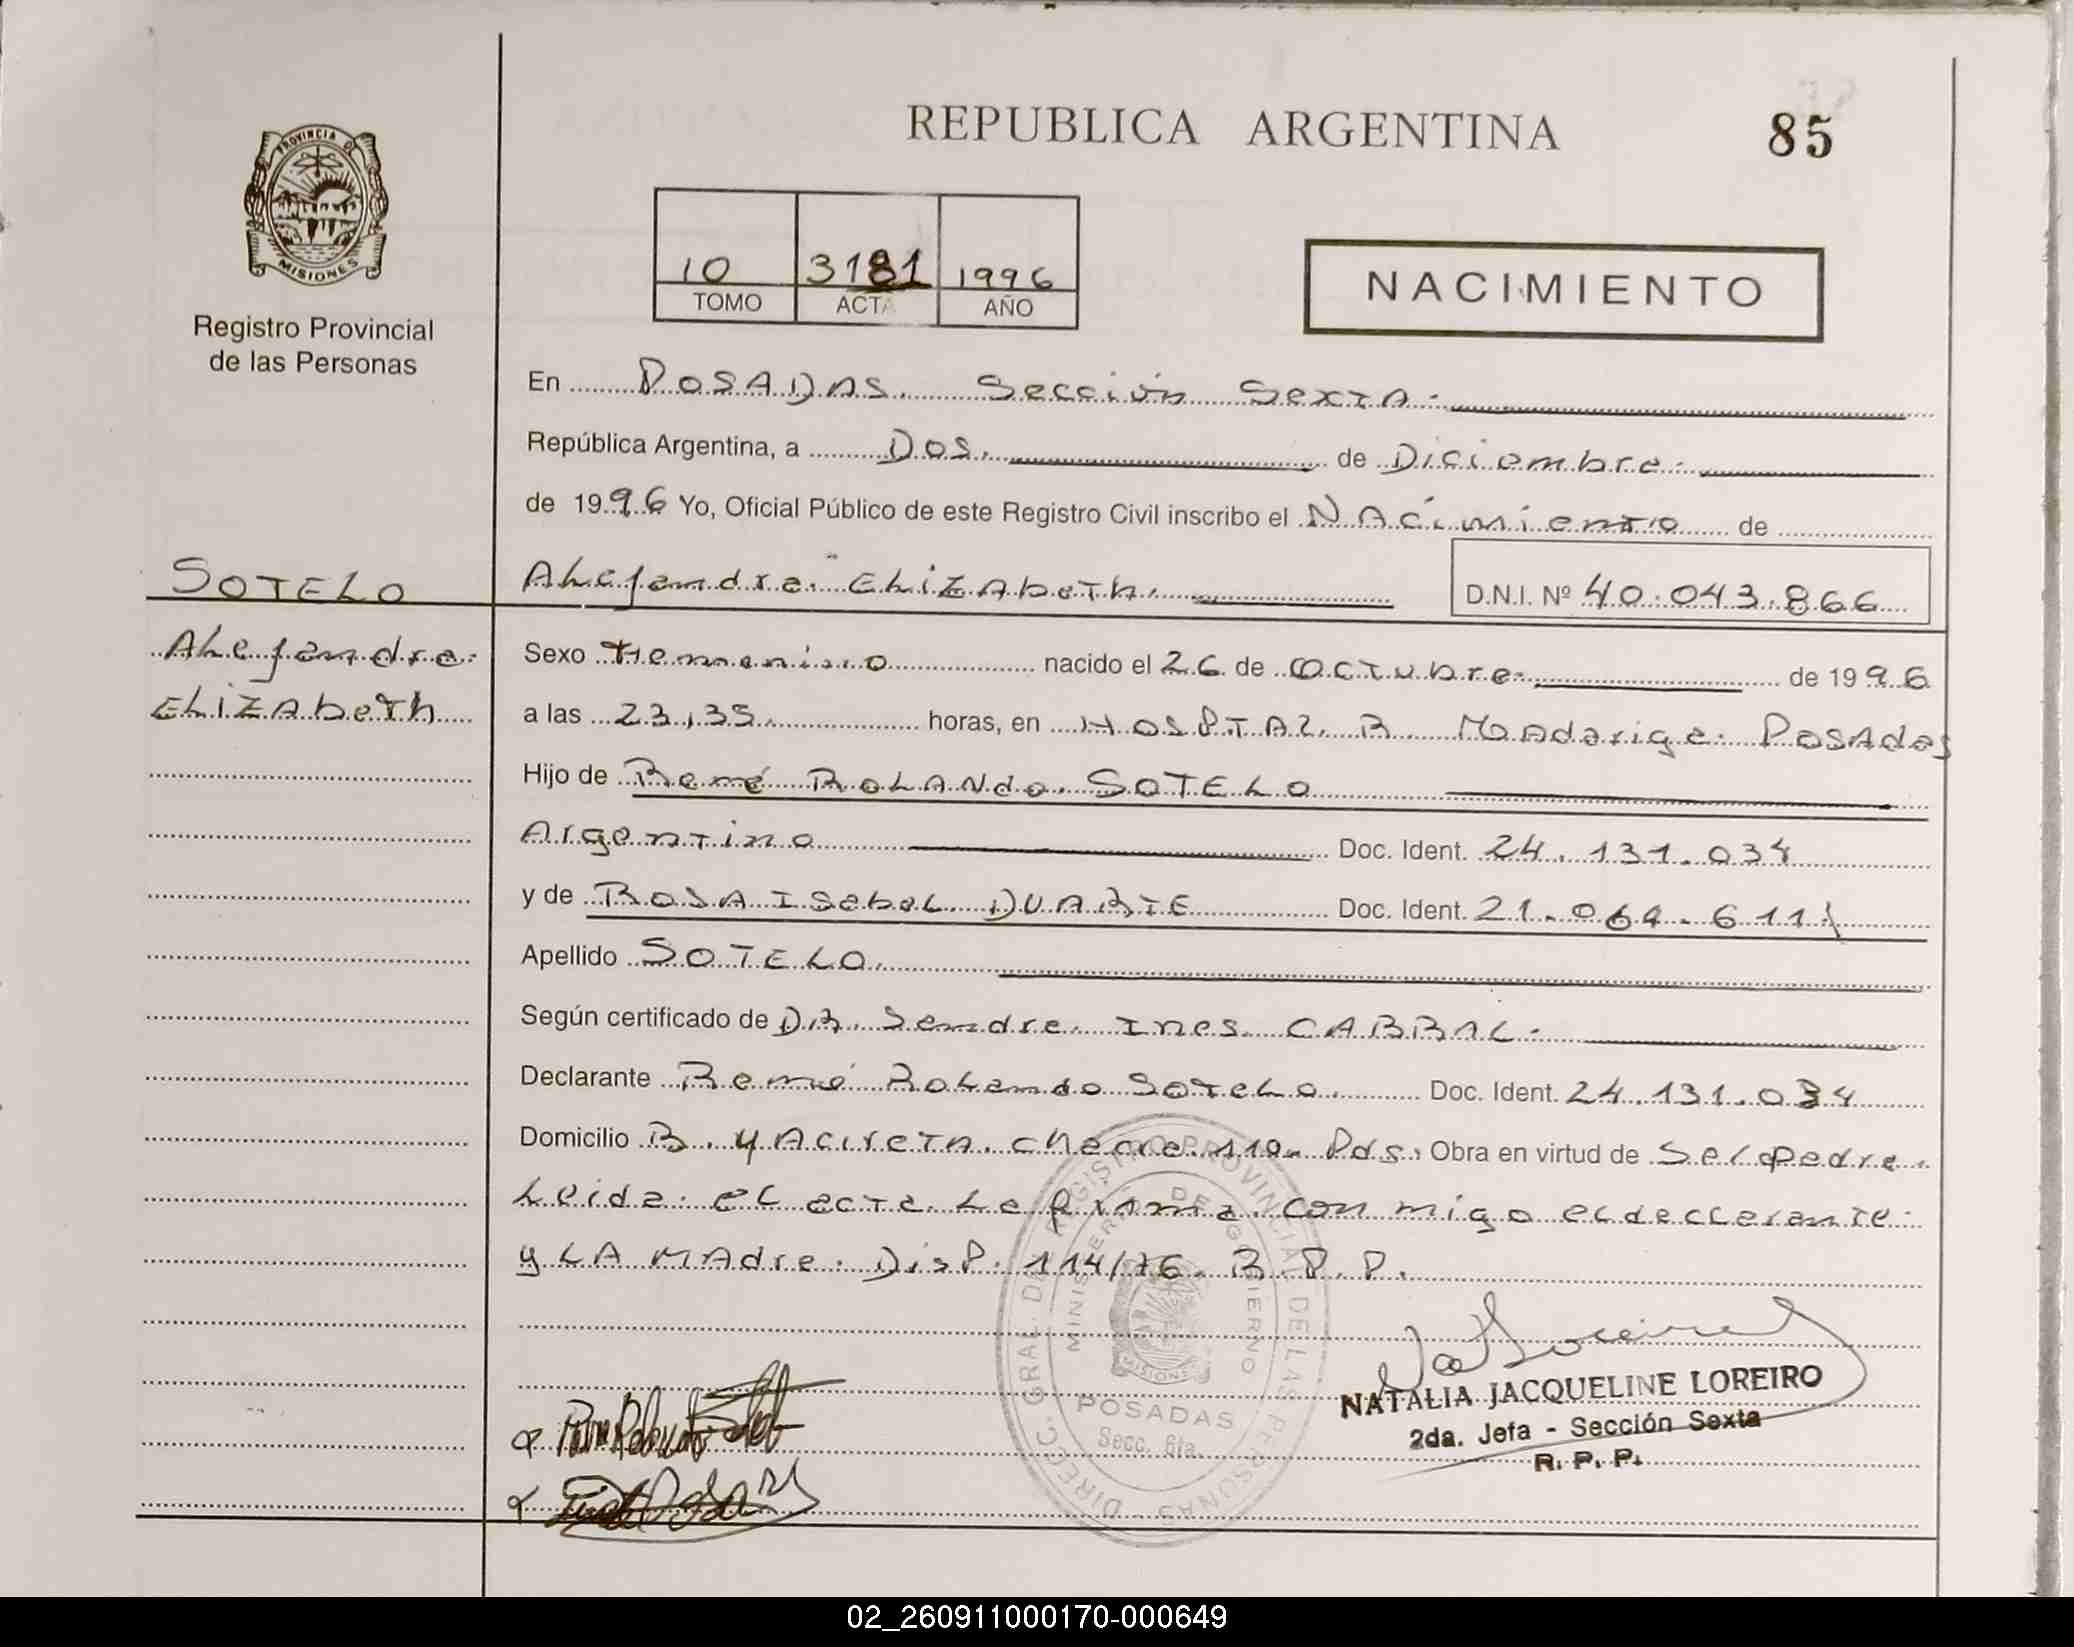 REPUBLICA ARGENTINA
85
PROVINCIA D
MISIONES
Registro Provincial
de las Personas
10 3181 1996
TOMO ACTA AÑO
NACIMIENTO
En POSADAS. Sección Sexta.
República Argentina, a Dos. de Diciembre.
de 1996 Yo, Oficial Público de este Registro Civil inscribo el NAcimiento de
SOTELO
Alejandra ELIZAbeth.
D.N.I. Nº 40.043.866
Alejandra
ELIZAbeth
Sexo Femenino nacido el 26 de octubre. de 1996
a las 23,35. horas, en HOSPTAL R. Madariaga. POSAdas
Hijo de René ROLANdo. SOTELO
Argentino Doc. Ident. 24.131.034
y de ROSA ISabel DUARTE Doc. Ident. 21.069.611
Apellido SOTELO.
Según certificado de DR. Sandra. Ines. CABRAL.
Declarante René Rolando SoteLo. Doc. Ident. 24.131.034
Domicilio B. YAcireta. chacra. 110. Pds. Obra en virtud de Ser padre.
Leida el acta La firma con migo el declarante
y LA MAdre. Disp. 114/76. R.P.P.
DIRECC. GRAL. DEL REGISTRO PROVINCIAL DE LAS PERSONAS
MINISTERIO DE GOBIERNO
MISIONES
POSADAS
Secc. 6ta.
NATALIA JACQUELINE LOREIRO
2da. Jefa - Sección Sexta
R. P. P.
02_260911000170-000649